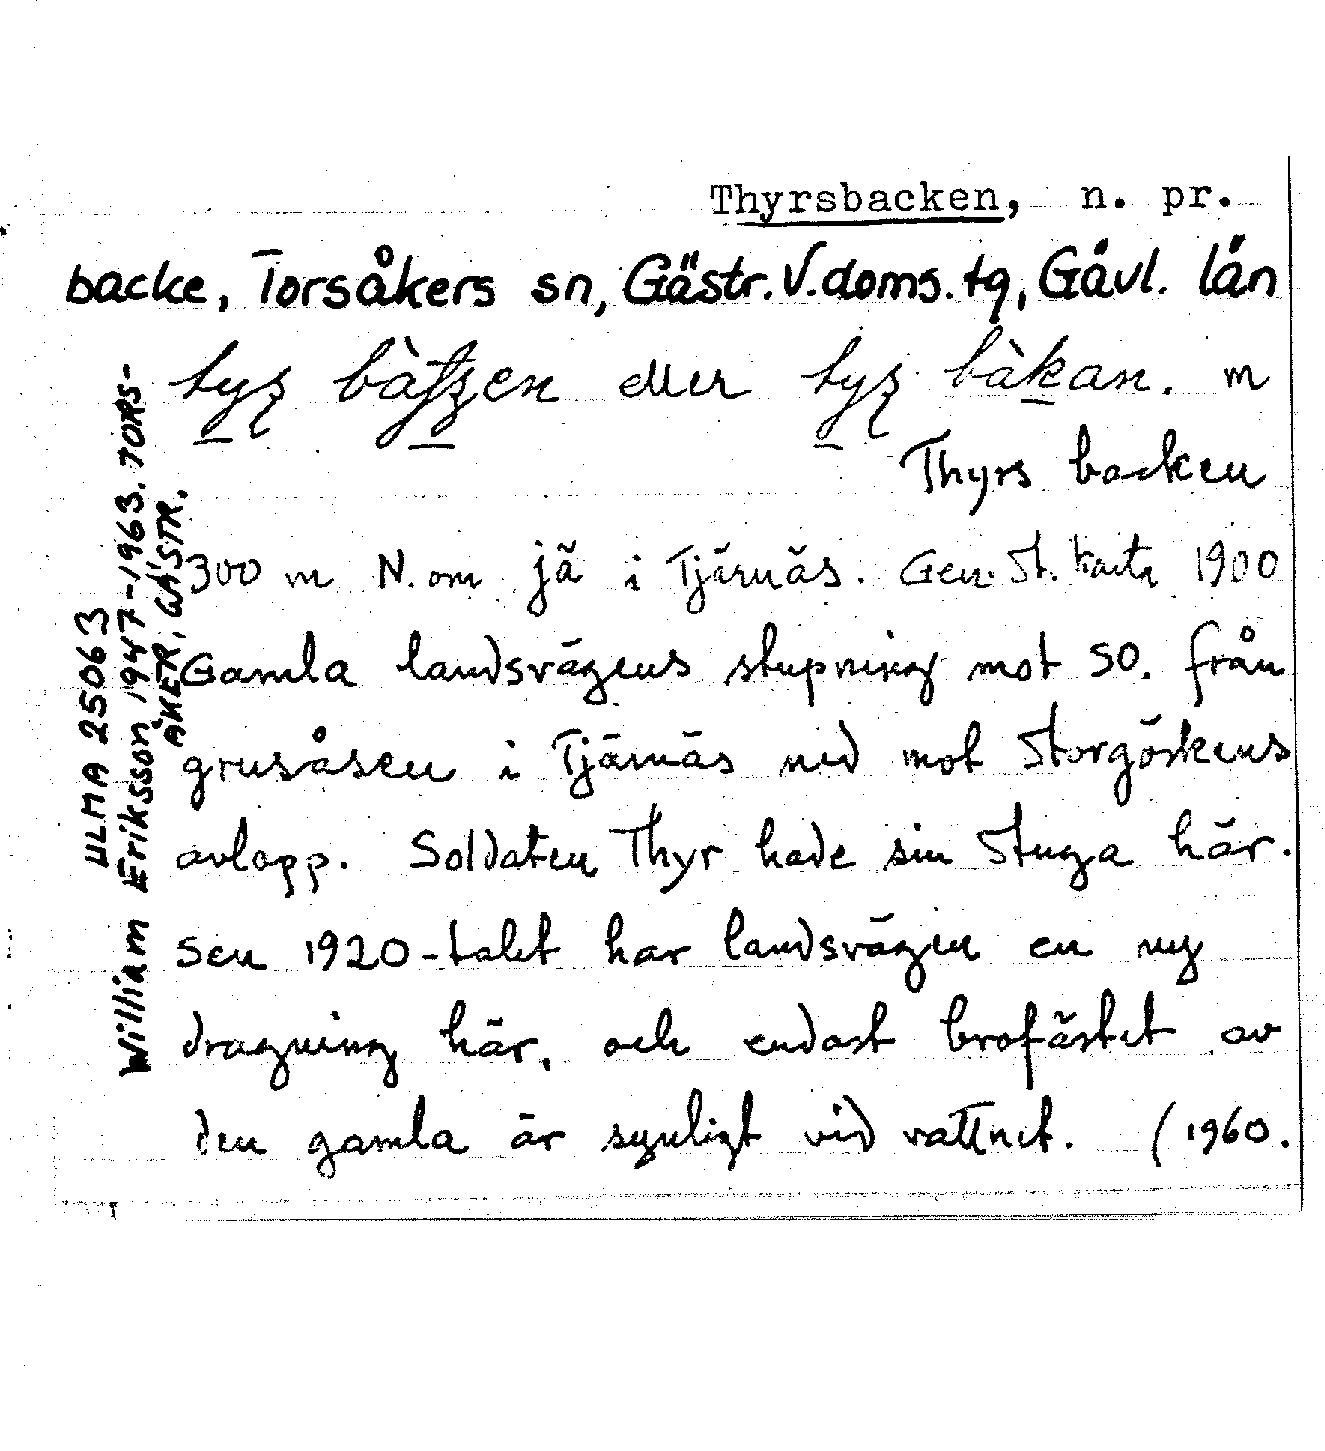 Thyrsbacken, n. pr.
backe, Torsåkers sn, Gästr. V. doms. tg, Gävl. län
eller m
Thyrs backen
300 m N. om jä i Tjärnäs. Gen. St. karta 1900
Gamla landsvägens stupning mot SO. från
grusåsen i Tjärnäs ned mot Storgöskens
avlopp. Soldaten Thyr hade sin stuga här.
Sen 1920-talet har landsvägen en ny
dragning här, och endast brofästet av
den gamla är synligt vid vattnet. (1960.
ULMA 25063
William Eriksson 1947-1963. TORS-
ÅKER, GÄSTR.